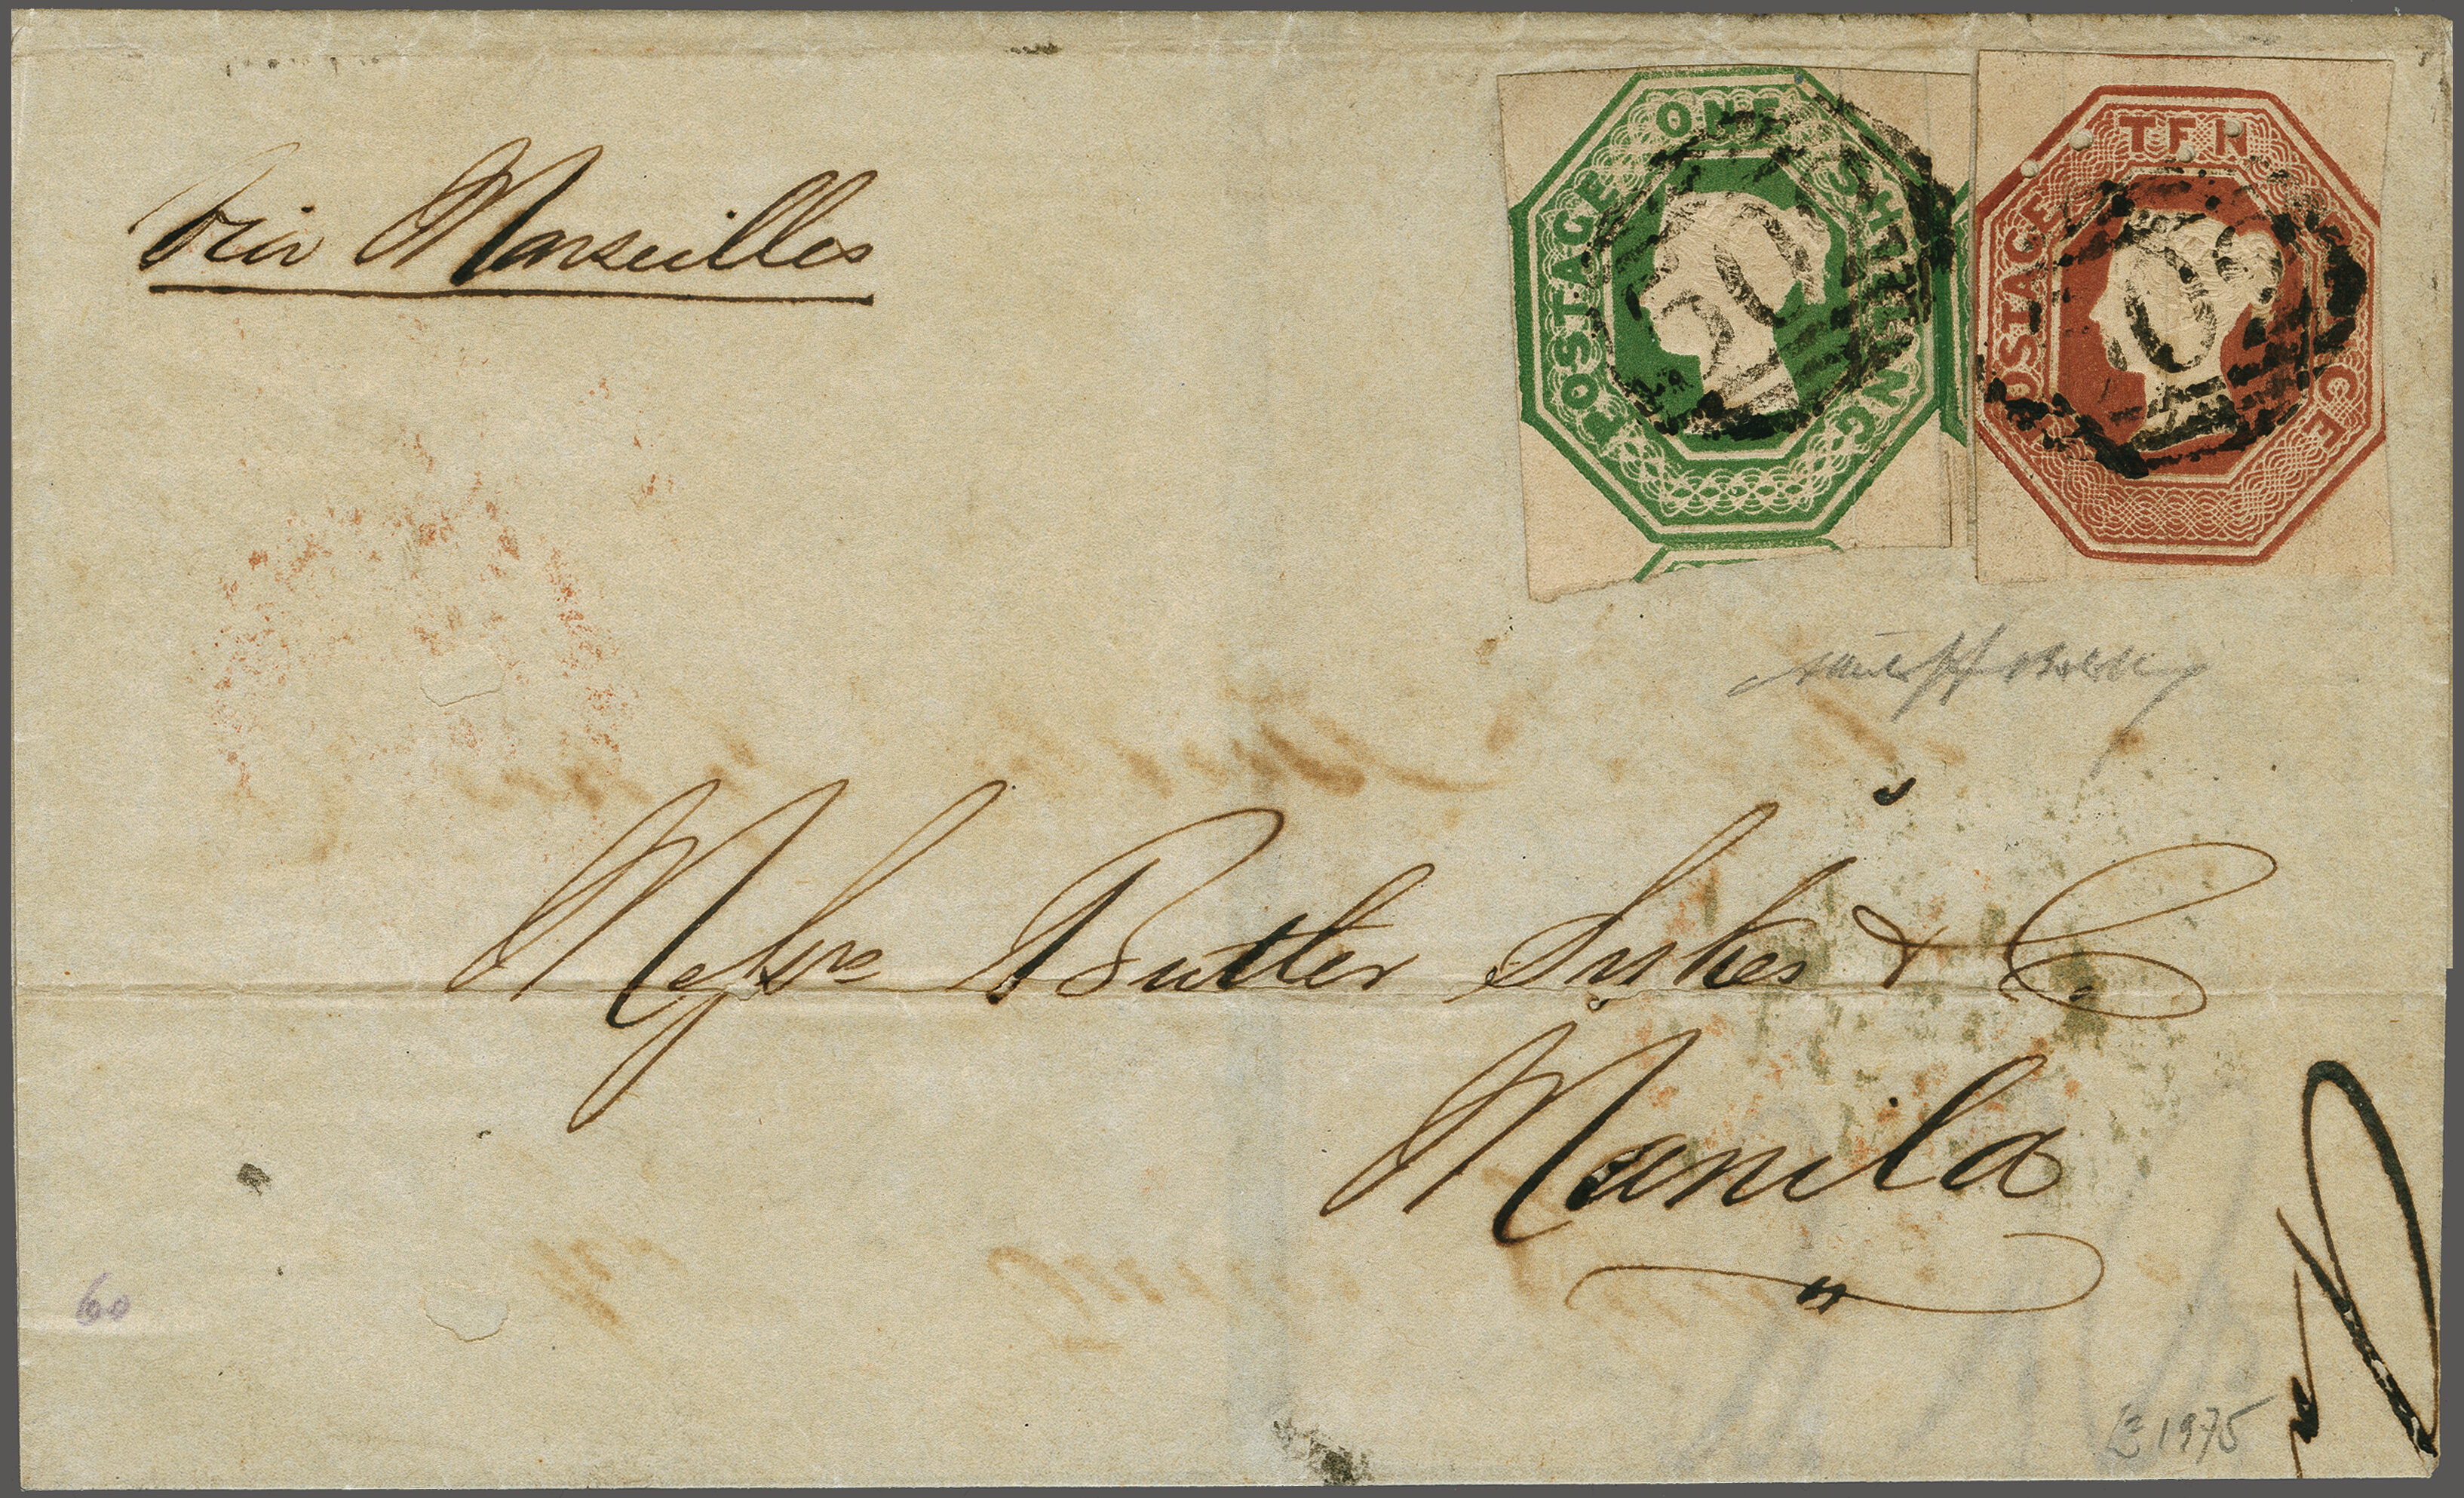 Via Marseilles
ONE SHILLING
POSTAGE
TEN PENCE
POSTAGE
Messrs Butler Sykes & Co.
Manila
60
1975